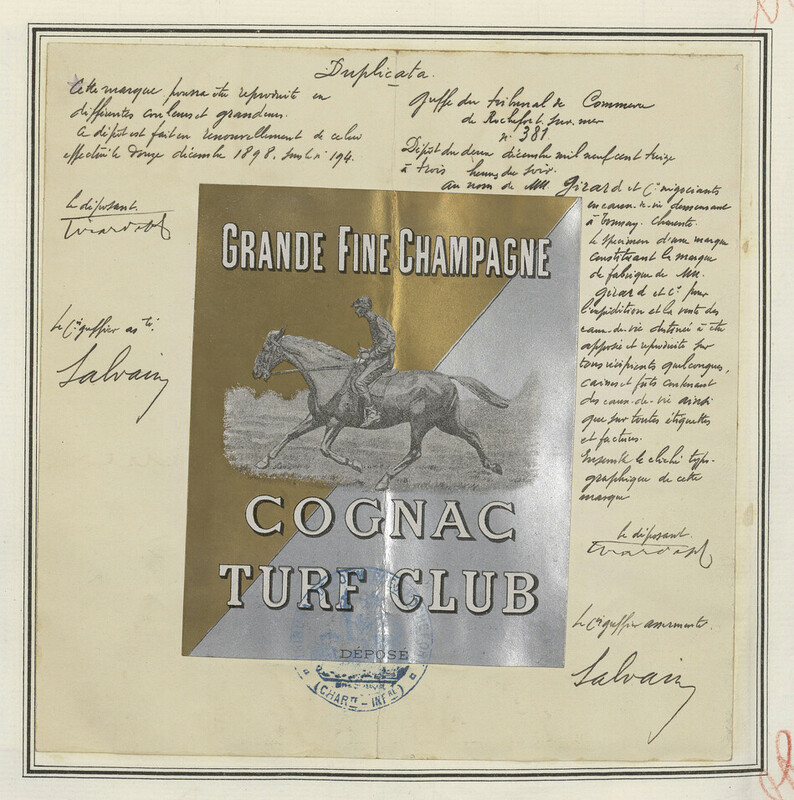 Duplicata.
Cette marque pourra être reproduite en
différentes couleurs et grandeurs.
Ce dépôt est fait en renouvellement de celui
effectué le douze décembre 1898. sous le n° 194.
Le déposant.
Girard et Cie
Le Cis greffier as té.
Salvain
Greffe du tribunal de Commerce
de Rochefort-sur-mer
n° 381
Dépôt du deux décembre mil neuf cent treize
à trois heures du soir.
au nom de MM. Girard et Cie négociants
en eaux-de-vie demeurant
à Tonnay-Charente.
le spécimen d'une marque
constituant la marque
de fabrique de MM.
Girard et Cie pour
l'expédition et la vente des
eaux-de-vie destinée à être
apposée et reproduite sur
tous récipients quelconques,
caisses et fûts contenant
des eaux-de-vie ainsi
que sur toutes étiquettes
et factures.
Ensemble le cliché typo-
graphique de cette
marque
Le déposant.
Girard et Cie
Le Cis greffier assermenté.
Salvain
GRANDE FINE CHAMPAGNE
COGNAC
TURF CLUB
DÉPOSÉ
(CHARTE - INFRE)